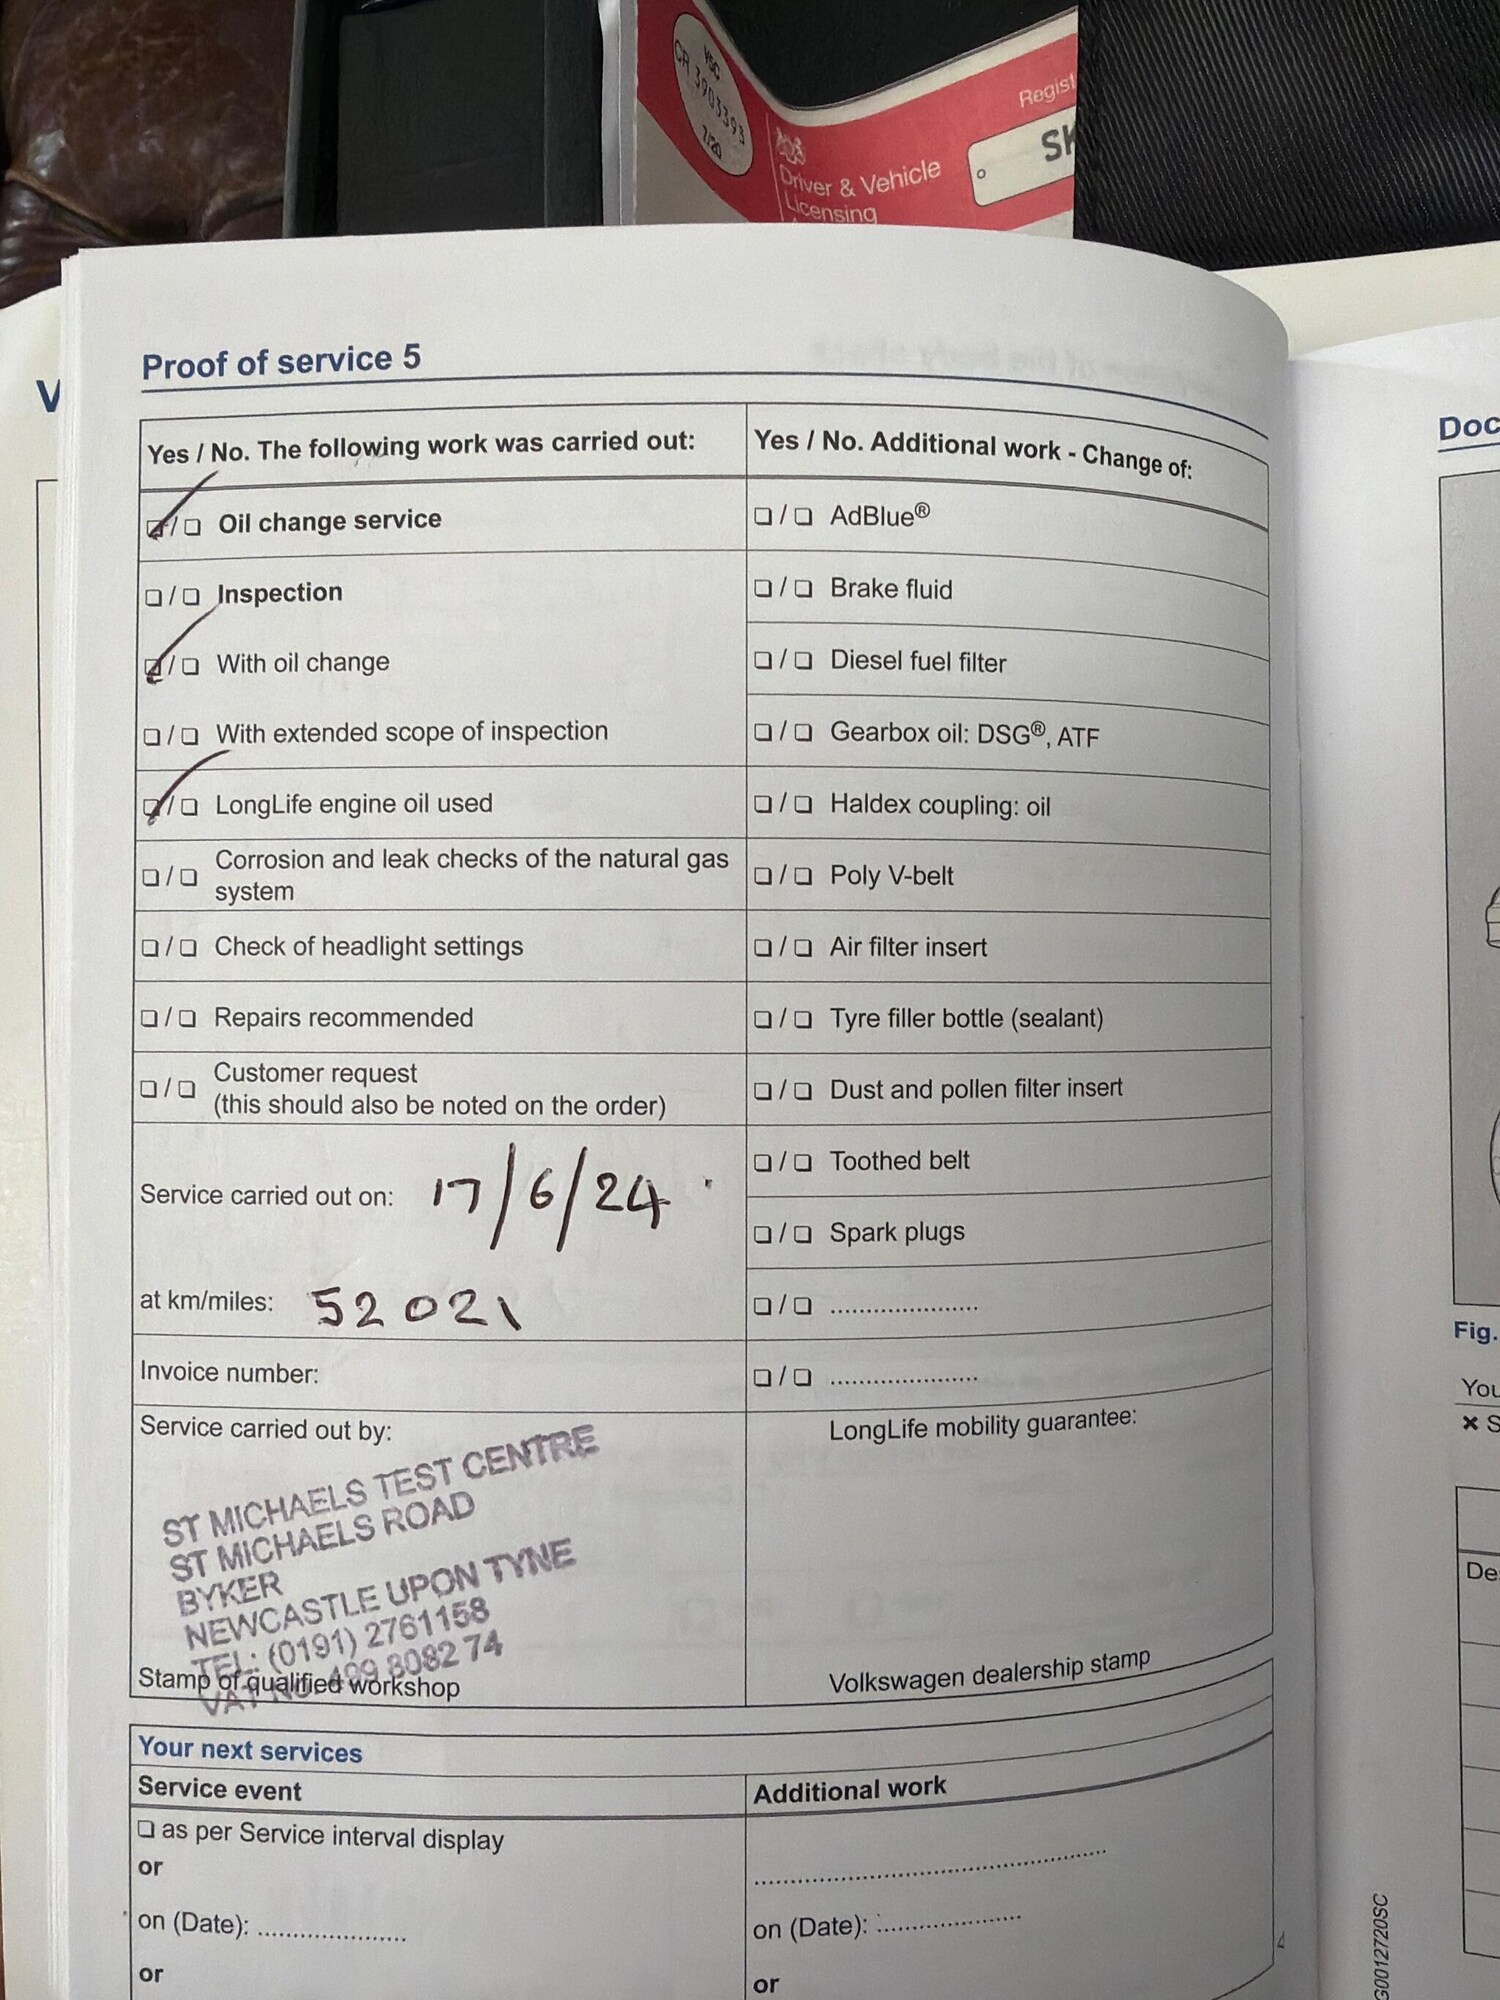 VSC
CR 3903393
7/20
Driver & Vehicle
Licensing
Regist
SK
V
Proof of service 5
Yes / No. The following work was carried out:
❑ / ❑ Oil change service
❑ / ❑ Inspection
❑ / ❑ With oil change
❑ / ❑ With extended scope of inspection
❑ / ❑ LongLife engine oil used
❑ / ❑ Corrosion and leak checks of the natural gas
system
❑ / ❑ Check of headlight settings
❑ / ❑ Repairs recommended
❑ / ❑ Customer request
(this should also be noted on the order)
Service carried out on: 17/6/24
at km/miles: 52021
Invoice number:
Service carried out by:
ST MICHAELS TEST CENTRE
ST MICHAELS ROAD
BYKER
NEWCASTLE UPON TYNE
TEL: (0191) 2761158
VAT No. 499 8082 74
Stamp of qualified workshop
Yes / No. Additional work - Change of:
❑ / ❑ AdBlue®
❑ / ❑ Brake fluid
❑ / ❑ Diesel fuel filter
❑ / ❑ Gearbox oil: DSG®, ATF
❑ / ❑ Haldex coupling: oil
❑ / ❑ Poly V-belt
❑ / ❑ Air filter insert
❑ / ❑ Tyre filler bottle (sealant)
❑ / ❑ Dust and pollen filter insert
❑ / ❑ Toothed belt
❑ / ❑ Spark plugs
❑ / ❑ .....................
❑ / ❑ .....................
LongLife mobility guarantee:
Volkswagen dealership stamp
Your next services
Service event
❑ as per Service interval display
or
on (Date): .....................
or
Additional work
..................................................
on (Date): .....................
or
Doc
Fig.
You
× S
De
G0012720SC